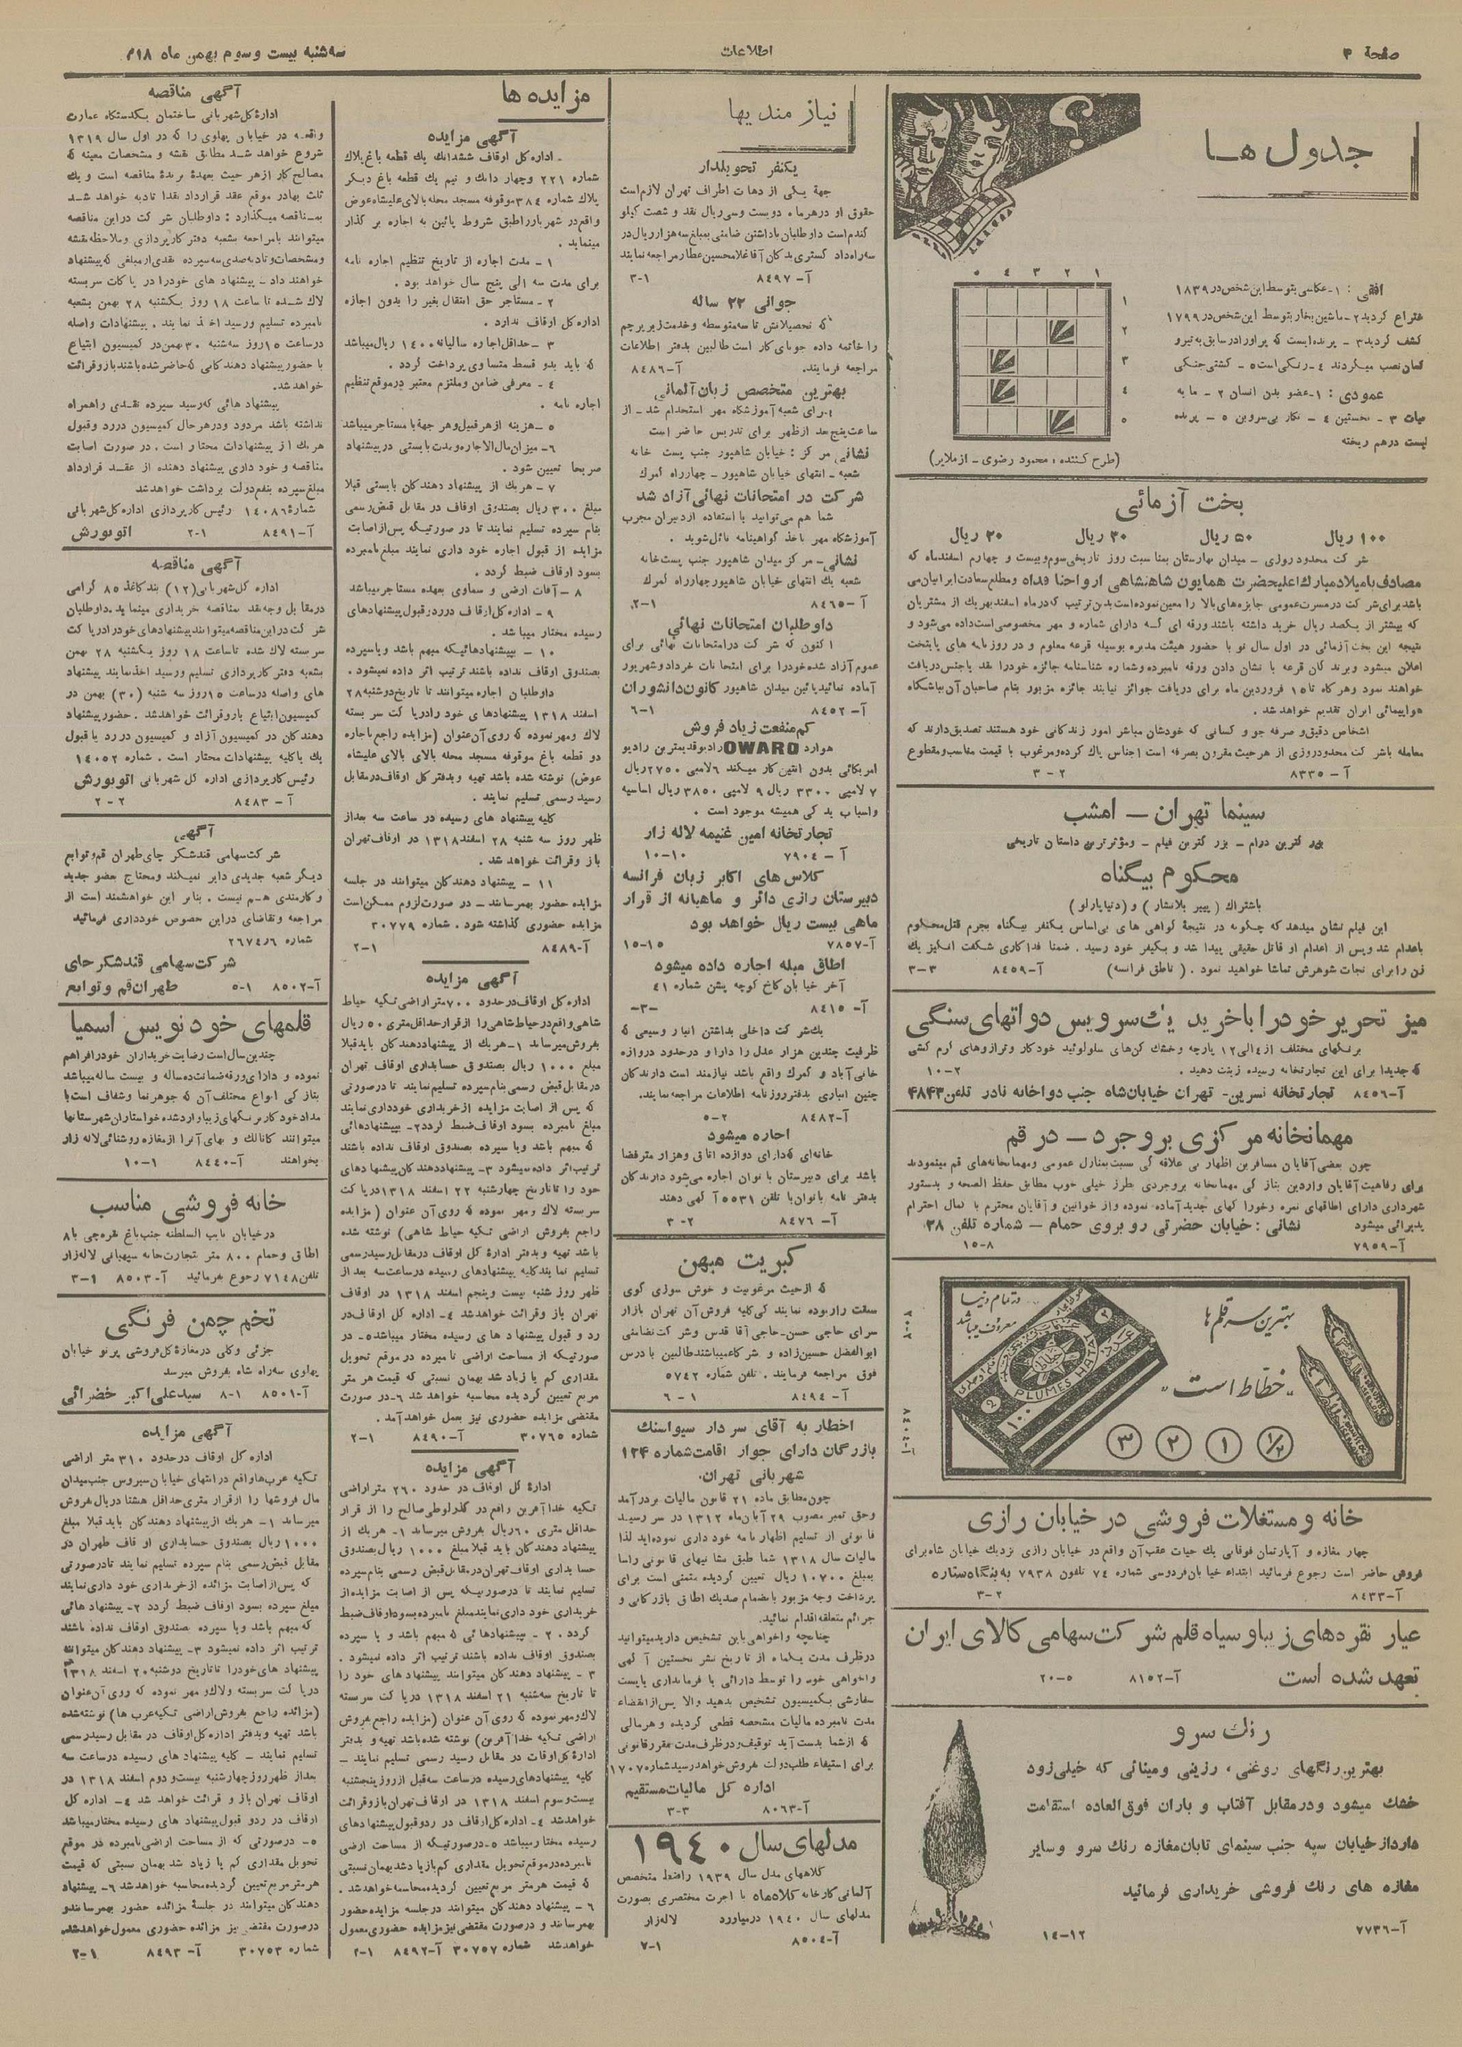 صفحهٔ ۳
اطلاعات
سه‌شنبه بیست و سوم بهمن ماه
جدول ها
۱ ۲ ۳ ٤ ٥
۱
۲
۳
٤
٥
افقی : ۱-عکاسی بتوسط این شخص در ۱۸۳۹
ختراع کردید ۲-ماشین بخار بتوسط این شخص در ۱۷۹۹
کشف گردید ۳ - پرنده‌ایست که پر او را در سابق به تیر و
کمان نصب میکردند ٤-رنگی است ٥- کشتی جنگی
عمودی : ۱-عضو بدن انسان ۲ - مایه
حیات ۳ - نخستین ٤ - نگار بی سر و بن ٥ - پرنده
لیست درهم ریخته
(طرح کننده ، محمود رضوی - از ملایر)
بخت آزمائی
۱۰۰ ریال ٥۰ ریال ۳۰ ریال ۲۰ ریال
شرکت محدود روزی - میدان بهارستان بمناسبت روز تاریخی سوم و بیست و چهارم اسفندماه که
مصادف با میلاد مبارک اعلیحضرت همایون شاهنشاهی ارواحنا فداه و مطلع سعادت ایرانیان می
باشد برای شرکت در مسرت عمومی جایزه‌های بالا را معین نموده است بدین ترتیب که در ماه اسفند بهر یک از مشتریان
که بیشتر از یکصد ریال خرید داشته باشند ورقه ای که دارای شماره و مهر مخصوصی است داده می‌شود و
نتیجه این بخت آزمائی در اول سال نو با حضور هیئت مدیره بوسیله قرعه معلوم و در روزنامه های پایتخت
اعلان میشود و برندگان قرعه با نشان دادن ورقه نامبرده و شماره شناسنامه جائزه خود را نقد یا جنس دریافت
خواهند نمود و هرگاه تا ۱٥ فروردین ماه برای دریافت جوائز نیایند جائزه مزبور بنام صاحبان آن بباشگاه
هواپیمائی ایران تقدیم خواهد شد .
اشخاص دقیق و صرفه جو و کسانی که خودشان مباشر امور زندگانی خود هستند تصدیق دارند که
معامله با شرکت محدود روزی از هر حیث مقرون بصرفه است اجناس پاک کرده و مرغوب با قیمت مناسب و مقطوع
آ - ۸۳۳٥ ۲ - ۳
سینما تهران - امشب
بزرگترین درام - بزرگترین فیلم - و مؤثرترین داستان تاریخی
محکوم بیگناه
باشتراک (پییر بلانشار ) و (دنیا پارلو )
این فیلم نشان میدهد که چگونه در نتیجهٔ گواهی های بی اساس یکنفر بیگناه بجرم قتل محکوم
باعدام شد و پس از اعدام او قاتل حقیقی پیدا شد و بکیفر خود رسید . ضمنا فداکاری شگفت انگیز یک
زن را برای نجات شوهرش تماشا خواهید نمود . ( ناطق فرانسه ) آ-۸٤٥۹ ۳-۳
میز تحریر خود را با خرید یک سرویس دواتهای سنگی
برنگهای مختلف از ٤ الی ۱۲ پارچه و خشک کن‌های سلولوئید خودکار و ترازوهای گرم کشی
که جدیدا برای این تجارتخانه رسیده زینت دهید . ۲-۱۰
آ-۸٤٥٦ تجارتخانه نسرین- تهران خیابان شاه جنب دواخانه نادر تلفن ٤۸٤۳
مهمانخانه مرکزی بروجرد - در قم
چون بعضی آقایان مسافرین اظهار بی علاقه گی نسبت بمنازل عمومی و مهمانخانه‌های قم مینمودند
برای رفاهیت آقایان واردین بنازگی مهمانخانه بروجردی بطرز خیلی خوب مطابق حفظ الصحه و بدستور
شهرداری دارای اطاقهای نمره و خوراکهای جدید آماده نموده و از خوانین و آقایان محترم با کمال احترام
پذیرائی میشود نشانی : خیابان حضرتی روبروی حمام - شماره تلفن ۳۸
آ-۷۹٥۹ ۸-۱٥
بهترین سرقلم ها
در تمام دنیا معروف میباشد
"خطاط است"
PLUMES HATAT
100
۱/۲ ۱ ۲ ۳
آ-۸٤۰٤ ۲-۲۰
خانه و مستغلات فروشی در خیابان رازی
چهار مغازه و آپارتمان فوقانی یک حیاط عقب آن واقع در خیابان رازی نزدیک خیابان شاه برای
فروش حاضر است رجوع فرمائید ابتداء خیابان فردوسی شماره ۷٤ تلفون ۷۹۳۸ به بنگاه ستاره
آ-۸٤۳۳ ۲-۳
عیار نقره‌های زیبا و سیاه قلم شرکت سهامی کالای ایران
تعهد شده است آ-۸۱٥۲ ٥-۲۰
رنگ سرو
بهترین رنگهای روغنی ، رزینی و مینائی که خیلی زود
خشک میشود و در مقابل آفتاب و باران فوق العاده استقامت
دارد از خیابان سپه جنب سینمای تابان مغازه رنگ سرو و سایر
مغازه های رنگ فروشی خریداری فرمائید
آ-۷۷۳٦ ۱۲-۱٤
نیازمندیها
یکنفر تحویلدار
جههٔ یکی از دهات اطراف تهران لازم است
حقوق او در هر ماه دویست و سی ریال نقد و شصت کیلو
گندم است داوطلبان با داشتن ضامنی بمبلغ سه هزار ریال در
سه راه دانگی گستری دکان آقا غلامحسین عطار مراجعه نمایند
آ-۸٤۹۷ ۱-۳
جوانی ۲۲ ساله
که تحصیلاتش تا سه متوسطه و خدمت زیر پرچم
را خاتمه داده جویای کار است طالبین بدفتر اطلاعات
مراجعه فرمایند. آ-۸٤۸٦
بهترین متخصص زبان آلمانی
برای شعبه آموزشگاه مهر استخدام شد - از
ساعت پنج بعد از ظهر برای تدریس حاضر است
نشانی مرکز : خیابان شاهپور جنب پست خانه
شعبه - انتهای خیابان شاهپور - چهارراه گمرک
شرکت در امتحانات نهائی آزاد شد
شما هم می‌توانید با استفاده از دبیران مجرب
آموزشگاه مهر باخذ گواهینامه نائل شوید .
نشانی- مرکز میدان شاهپور جنب پست خانه
شعبه یک انتهای خیابان شاهپور چهارراه گمرک
آ-۸٤٦٥ ۱-۲
داوطلبان امتحانات نهائی
اکنون که شرکت در امتحانات نهائی برای
عموم آزاد شده خود را برای امتحانات خرداد و شهریور
آماده نمائید پائین میدان شاهپور کانون دانشوران
آ-۸٤٥۲ ۱-٦
کم منفعت زیاد فروش
هوارد OWARD رادیو قدیمترین رادیو
امریکائی بدون آنتن کار میکند ٦ لامپی ۲۷٥۰ ریال
۷ لامپی ۳۳۰۰ ریال ۹ لامپی ۳۸٥۰ ریال اساسیه
و اسباب یدکی همیشه موجود است .
تجارتخانه امین غنیمه لاله زار
آ - ۷۹۰٤ ۱۰-۱۰
کلاس های اکابر زبان فرانسه
دبیرستان رازی دائر و ماهیانه از قرار
ماهی بیست ریال خواهد بود
آ-۷۸٥۷ ۱٥-۱٥
اطاق مبله اجاره داده میشود
آخر خیابان کاخ کوچه پشن شماره ٤۱
آ-۸٤۱٥ -۳-
یک شرکت داخلی بداشتن انبار وسیعی که
ظرفیت چندین هزار عدل را دارا و در حدود دروازه
خانی آباد و گمرک واقع باشد نیازمند است دارندگان
چنین انباری بدفتر روزنامه اطلاعات مراجعه نمایند.
آ-۸٤۸۲ ۲-٥
اجاره میشود
خانه‌ای که دارای دوازده اتاق و هزار متر فضا
باشد برای دبیرستان بانوان اجاره می‌شود دارندگان
بدفتر نامه بانوان با تلفن ٥٥۳۱ آگهی دهند
آ- ۸٤۷٦ ۲-۳
کبریت میهن
که از حیث مرغوبیت و خوش سوزی گوی
سبقت را ربوده نمایندگی کلیه فروش آن تهران بازار
سرای حاجی حسن-حاجی آقا قدس و شرکت تضامنی
ابوالفضل حسین زاده و شرکاء میباشند طالبین با درس
فوق مراجعه فرمایند . تلفن شماره ٥۷٤۲
آ-۸٤۹٤ ۱-٦
اخطار به آقای سردار سیواسنک
بازرگان دارای جواز اقامت شماره ۱۲۴
شهربانی تهران.
چون مطابق ماده ۲۱ قانون مالیات بر درآمد
و حق تمبر مصوب ۲۹ آبان ماه ۱۳۱۲ در سر رسید
قانونی از تسلیم اظهارنامه خود داری نموده‌اید لذا
مالیات سال ۱۳۱۸ شما طبق نشانیهای قانونی رأسا
بمبلغ ۱۰۷۰۰ ریال تعیین گردیده متمنی است برای
پرداخت وجه مزبور بانضمام صدیک اطاق بازرگانی و
جرائم متعلقه اقدام نمائید.
چنانچه واخواهی باین تشخیص دارید میتوانید
در ظرف مدت یکماه از تاریخ نشر نخستین آگهی
واخواهی خود را توسط دارائی یا فرمانداری با پست
سفارشی بکمیسیون تشخیص بدهید والا پس از انقضاء
مدت نامبرده مالیات مشخصه قطعی گردیده و هر مالی
که از شما بدست آید توقیف و در ظرف مدت مقرر قانونی
برای استیفاء طلب دولت بفروش خواهد رسید شماره ۱۷۰۷
اداره کل مالیات مستقیم
آ-۸۰٦۳ ۳-۳
مدلهای سال ۱۹٤۰
کلاههای مدل سال ۱۹۳۹ را فقط متخصص
آلمانی کارخانه کلاه‌ماه با اجرت مختصری بصورت
مدلهای سال ۱۹٤۰ درمیاورد لاله‌زار
آ-۸٥۰٤ ۱-۷
مزایده ها
آگهی مزایده
- اداره کل اوقاف ششدانگ یک قطعه باغ پلاک
شماره ۲۲۱ و چهار دانگ و نیم یک قطعه باغ دیگر
پلاک شماره ۳۸٤ موقوفه مسجد محله بالای علیشاه عوض
واقع در شهریار را طبق شروط پائین به اجاره بر گذار
مینماید .
۱ - مدت اجاره از تاریخ تنظیم اجاره نامه
برای مدت سه الی پنج سال خواهد بود .
۲ - مستاجر حق انتقال بغیر را بدون اجازه
اداره کل اوقاف ندارد .
۳ - حداقل اجاره سالیانه ۱٤۰۰ ریال میباشد
که باید بدو قسط متساوی پرداخت گردد .
٤ - معرفی ضامن و ملتزم معتبر در موقع تنظیم
اجاره نامه .
٥- هزینه از هر قبیل و هر جهة با مستاجر میباشد
٦- میزان مال الاجاره و مدت بایستی در پیشنهاد
صریحا تعیین شود .
۷ - هریک از پیشنهاد دهندگان بایستی قبلا
مبلغ ۳۰۰ ریال بصندوق اوقاف در مقابل قبض رسمی
بنام سپرده تسلیم نمایند تا در صورتیکه پس از اصابت
مزایده از قبول اجاره خود داری نمایند مبلغ نامبرده
بسود اوقاف ضبط گردد .
۸ - آفات ارضی و سماوی بعهده مستاجر میباشد
۹ - اداره کل اوقاف در رد و قبول پیشنهادهای
رسیده مختار میباشد .
۱۰ - بپیشنهادهائیکه مبهم باشد و یا سپرده
بصندوق اوقاف نداده باشند ترتیب اثر داده نمیشود .
داوطلبان اجاره میتوانند تا تاریخ دوشنبه ۲۸
اسفند ۱۳۱۸ پیشنهادهای خود را در پاکت سر بسته
لاک و مهر نموده که روی آن عنوان (مزایده راجع باجاره
دو قطعه باغ موقوفه مسجد محله بالای بالای علیشاه
عوض) نوشته شده باشد تهیه و بدفتر کل اوقاف در مقابل
رسید رسمی تسلیم نمایند .
کلیه پیشنهاد های رسیده در ساعت سه بعد از
ظهر روز سه شنبه ۲۸ اسفند ۱۳۱۸ در اوقاف تهران
باز و قرائت خواهد شد .
۱۱ - پیشنهاد دهندگان میتوانند در جلسه
مزایده حضور بهمرسانند - در صورت لزوم ممکن است
مزایده حضوری گذاشته شود . شماره ۳۰۷۷۹
آ-۸٤۸۹ ۱-۲
آگهی مزایده
اداره کل اوقاف در حدود ۷۰۰ متر اراضی تکیه حیاط
شاهی واقع در حیاط شاهی را از قرار حداقل متری ٥۰ ریال
بفروش میرساند ۱- هریک از پیشنهاد دهندگان باید قبلا
مبلغ ۱۰۰۰ ریال بصندوق حسابداری اوقاف تهران
در مقابل قبض رسمی بنام سپرده تسلیم نمایند تا در صورتی
که پس از اصابت مزایده از خریداری خودداری نمایند
مبلغ نامبرده بسود اوقاف ضبط گردد ۲- بپیشنهادهائی
که مبهم باشد و یا سپرده بصندوق اوقاف نداده باشند
ترتیب اثر داده نمیشود ۳- پیشنهاد دهندگان پیشنهادهای
خود را تا تاریخ چهارشنبه ۲۲ اسفند ۱۳۱۸ در پاکت
سر بسته لاک و مهر نموده که روی آن عنوان ( مزایده
راجع بفروش اراضی تکیه حیاط شاهی ) نوشته شده
باشد تهیه و بدفتر ادارهٔ کل اوقاف در مقابل رسید رسمی
تسلیم نمایند کلیه پیشنهادهای رسیده در ساعت سه بعد از
ظهر روز شنبه بیست و پنجم اسفند ۱۳۱۸ در اوقاف
تهران باز و قرائت خواهد شد ٤- اداره کل اوقاف در
رد و قبول پیشنهاد های رسیده مختار میباشد ٥- در
صورتیکه از مساحت اراضی نامبرده در موقع تحویل
مقداری کم یا زیاد شد بهمان نسبتی که قیمت هر متر
مربع تعیین گردیده محاسبه خواهد شد ٦-در صورت
مقتضی مزایده حضوری نیز بعمل خواهد آمد .
شماره ۳۰۷٦٥ آ-۸٤۹۰ ۱-۲
آگهی مزایده
ادارهٔ کل اوقاف در حدود ۲٦۰ متر اراضی
تکیه خدا آفرین واقع در گذر لوطی صالح را از قرار
حداقل متری ٦۰ ریال بفروش میرساند ۱- هریک از
پیشنهاد دهندگان باید قبلا مبلغ ۱۰۰۰ ریال بصندوق
حسابداری اوقاف تهران در مقابل قبض رسمی بنام سپرده
تسلیم نمایند تا در صورتیکه پس از اصابت مزایده از
خریداری خودداری نمایند مبلغ نامبرده بسود اوقاف ضبط
گردد . ۲ - بپیشنهادهائی که مبهم باشد و یا سپرده
بصندوق اوقاف نداده باشند ترتیب اثر داده نمیشود .
۳ - پیشنهاد دهندگان میتوانند پیشنهاد های خود را
تا تاریخ سه‌شنبه ۲۱ اسفند ۱۳۱۸ در پاکت سر بسته
لاک و مهر نموده که روی آن عنوان (مزایده راجع بفروش
اراضی تکیه خدا آفرین) نوشته شده باشد تهیه و بدفتر
ادارهٔ کل اوقاف در مقابل رسید رسمی تسلیم نمایند -
کلیه پیشنهادهای رسیده در ساعت سه قبل از روز پنجشنبه
بیست و سوم اسفند ۱۳۱۸ در اوقاف تهران باز و قرائت
خواهد شد ٤- اداره کل اوقاف در رد و قبول پیشنهادهای
رسیده مختار میباشد ٥-در صورتیکه از مساحت ارضی
نامبرده در موقع تحویل مقداری کم یا زیاد شد بهمان نسبتی
که قیمت هر متر مربع تعیین گردیده محاسبه خواهد شد .
٦- پیشنهاد دهندگان میتوانند در جلسه مزایده حضور
بهمرسانند و در صورت مقتضی نیز مزایده حضوری معمول
خواهد شد شماره ۳۰۷٥۷ آ-۸٤۹۲ ۱-۲
آگهی مناقصه
ادارهٔ کل شهربانی ساختمان یکدستگاه عمارت
واقعه در خیابان پهلوی را که در اول سال ۱۳۱۹
شروع خواهد شد مطابق نقشه و مشخصات معینه که
مصالح کار از هر حیث بعهدهٔ برندهٔ مناقصه است و یک
ثلث بها در موقع عقد قرارداد نقدا تادیه خواهد شد
بمناقصه میگذارد : داوطلبان شرکت در این مناقصه
میتوانند با مراجعه بشعبه دفتر کارپردازی و ملاحظه نقشه
و مشخصات و تادیه صدی سه سپرده نقدی از مبلغی که پیشنهاد
خواهند داد - پیشنهاد های خود را در پاکت سر بسته
لاک شده تا ساعت ۱۸ روز یکشنبه ۲۸ بهمن بشعبه
نامبرده تسلیم و رسید اخذ نمایند . پیشنهادات واصله
در ساعت ۱٥ روز سه شنبه ۳۰ بهمن در کمیسیون ابتیاع
با حضور پیشنهاد دهندگانی که حاضر شده باشند باز و قرائت
خواهد شد.
پیشنهاد هائی که رسید سپرده نقدی را همراه
نداشته باشد مردود و در هر حال کمیسیون در رد و قبول
هر یک از پیشنهادات مختار است . در صورت اصابت
مناقصه و خود داری پیشنهاد دهنده از عقد قرارداد
مبلغ سپرده بنفع دولت برداشت خواهد شد
شمارهٔ ۱٤۰۸٦ رئیس کارپردازی اداره کل شهربانی
آ-۸٤۹۱ ۱-۲ اتوبورش
آگهی مناقصه
اداره کل شهربانی (۱۲) بند کاغذ ۸٥ گرامی
در مقابل وجه نقد بمناقصه خریداری مینماید. داوطلبان
شرکت در این مناقصه میتوانند پیشنهادهای خود را در پاکت
سر بسته لاک شده تا ساعت ۱۸ روز یکشنبه ۲۸ بهمن
بشعبه دفتر کارپردازی تسلیم و رسید اخذ نمایند پیشنهاد
های واصله در ساعت ۱٥ روز سه شنبه (۳۰) بهمن در
کمیسیون ابتیاع باز و قرائت خواهد شد . حضور پیشنهاد
دهندگان در کمیسیون آزاد و کمیسیون در رد یا قبول
یک یا کلیه پیشنهادات مختار است . شماره ۱٤۰٥۲
رئیس کارپردازی اداره کل شهربانی اتوبورش
آ - ۸٤۸۳ ۲ - ۲
آگهی
شرکت سهامی قندشکر چای طهران قم و توابع
دیگر شعبه جدیدی دایر نمیکند و محتاج بعضو جدید
و کارمندی هم نیست . بنابر این خواهشمند است از
مراجعه و تقاضای در این خصوص خودداری فرمائید
شماره ۲٦۷٤٫٦
شرکت سهامی قند شکر چای
آ-۸٥۰۲ ۱-٥ طهران قم و توابع
قلمهای خودنویس اسمیا
چندین سال است رضایت خریداران خود را فراهم
نموده و دارای ورقه ضمانت ده ساله و بیست ساله میباشد
بتازگی انواع مختلف آن که جوهر نما و شفاف است با
مداد خودکار برنگهای زیبا وارد شده خواستاران شهرستانها
میتوانند کاتالگ و بهای آنرا از مغازه روشنائی لاله زار
بخواهند آ-۸٤٤۰ ۱-۱۰
خانه فروشی مناسب
در خیابان نایب السلطنه جنب باغ قره‌چی با ۸
اطاق و حمام ۸۰۰ متر بتجارتخانه سپهبانی لاله‌زار
تلفن ۷۱٤۸ رجوع بفرمائید آ-۸٥۰۳ ۱-۳
تخم چمن فرنگی
جزئی و کلی در مغازهٔ گل فروشی پرتو خیابان
پهلوی سه‌راه شاه بفروش میرسد
آ-۸٥۰۱ ۱-۸ سید علی اکبر خضرائی
آگهی مزایده
اداره کل اوقاف در حدود ۳۱۰ متر اراضی
تکیه عرب‌ها واقع در انتهای خیابان سیروس جنب میدان
مال فروشها را از قرار متری حداقل هشتاد ریال بفروش
میرساند ۱- هریک از پیشنهاد دهندگان باید قبلا مبلغ
۱۰۰۰ ریال بصندوق حسابداری اوقاف طهران در
مقابل قبض رسمی بنام سپرده تسلیم نمایند تا در صورتی
که پس از اصابت مزائده از خریداری خود داری نمایند
مبلغ سپرده بسود اوقاف ضبط گردد ۲- بپیشنهاد هائی
که مبهم باشد و یا سپرده بصندوق اوقاف نداده باشند
ترتیب اثر داده نمیشود ۳- پیشنهاد دهندگان میتوانند
پیشنهاد های خود را تا تاریخ دوشنبه ۲۰ اسفند ۱۳۱۸
در پاکت سر بسته و لاک و مهر نموده که روی آن عنوان
(مزائده راجع بفروش اراضی تکیه عرب ها ) نوشته شده
باشد تهیه و بدفتر اداره کل اوقاف در مقابل رسید رسمی
تسلیم نمایند - کلیه پیشنهاد های رسیده در ساعت سه
بعد از ظهر روز چهارشنبه بیست و دوم اسفند ۱۳۱۸ در
اوقاف تهران باز و قرائت خواهد شد ٤- اداره کل
اوقاف در رد و قبول پیشنهاد های رسیده مختار میباشد
٥- در صورتی که از مساحت اراضی نامبرده در موقع
تحویل مقداری کم یا زیاد شد بهمان نسبتی که قیمت
هر متر مربع تعیین گردیده محاسبه خواهد شد ٦- پیشنهاد
دهندگان میتوانند در جلسهٔ مزائده حضور بهمرسانند و
در صورت مقتضی نیز مزائده حضوری معمول خواهد شد
شماره ۳۰۷٥۳ آ- ۸٤۹۳ ۱-۲